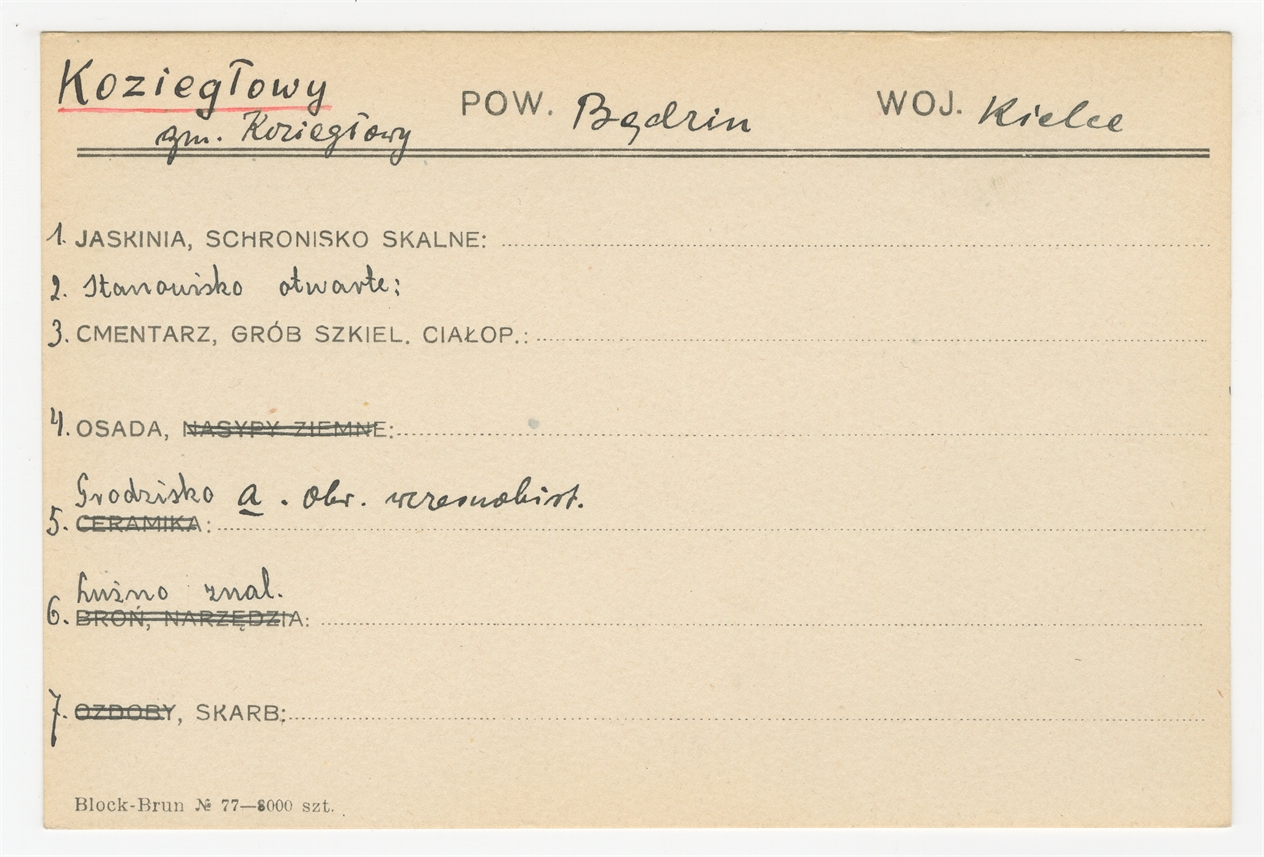 Koziegłowy POW. Będzin WOJ. Kielce
gm. Koziegłowy
1. JASKINIA, SCHRONISKO SKALNE:
2. Stanowisko otwarte:
3. CMENTARZ, GRÓB SZKIEL. CIAŁOP.:
4. OSADA, NASYPY ZIEMNE:
Grodzisko a. okr. wczesnohist.
5. CERAMIKA:
Luźno znal.
6. BROŃ, NARZĘDZIA:
7. OZDOBY, SKARB:
Block-Brun № 77—8000 szt.